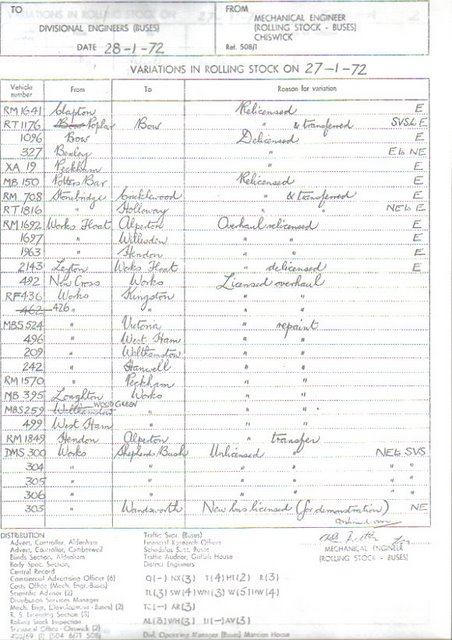 TO
DIVISIONAL ENGINEERS (BUSES)
DATE 28-1-72
FROM
MECHANICAL ENGINEER
(ROLLING STOCK - BUSES)
CHISWICK
Ref. 508/1
VARIATIONS IN ROLLING STOCK ON 27-1-72
Vehicle number From To Reason for variation
RM 1641 Clapton Relicensed E
RT 1176 Poplar Bow " & transferred SVS.L E
1096 Bow Delicensed E
327 Bexley " E to NE
XA 19 Peckham " E
MB 150 Potters Bar Relicensed E
RM 708 Stonbridge Cricklewood " & transferred E
RT 1816 " Holloway " " NE to E
RM 1692 Works Float Alperton Overhaul relicensed E
1697 " Willesden " " E
1963 " Hendon " " E
2143 Leyton Works Float " delicensed E
492 New Cross Works Licensed overhaul
RF 436 Works Kingston " "
462 426 " " " "
MBS 524 " Victoria " repaint
496 " West Ham " "
209 " Walthamstow " "
242 " Hanwell " "
RM 1570 " Peckham " "
MB 395 Loughton Works " "
MBS 259 Walthamstow WOOD GREEN " " "
499 West Ham " " "
RM 1849 Hendon Alperton " transfer
DMS 300 Works Shepherds Bush Unlicensed " NE to SVS
304 " " " " " "
305 " " " " " "
306 " " " " " "
303 " Wandsworth New bus licensed (for demonstration) NE
DISTRIBUTION
Advert. Controller, Aldenham
Advert. Controller, Camberwell
Blinds Section, Aldenham
Body Spec. Section,
Central Record
Commercial Advertising Officer (6)
Costs Office (Mech. Engr. Buses)
Scientific Adviser (2)
Distribution Services Manager
R. S. Licensing Section (3)
Rolling Stock Inspection
Technical Office - Chiswick (2)
Traffic Supr. (Buses)
Financial Research Officer
Schedules Supt. Buses
Traffic Auditor, Griffith House
District Engineers
Q (-) NX (3) T (4) HT (2) R (3)
TL (3) SW (4) WN (3) W (5) HW (4)
TC (-) AR (3)
Divl. Operating Managers (Buses) Mansion House
MECHANICAL ENGINEER
(ROLLING STOCK - BUSES)